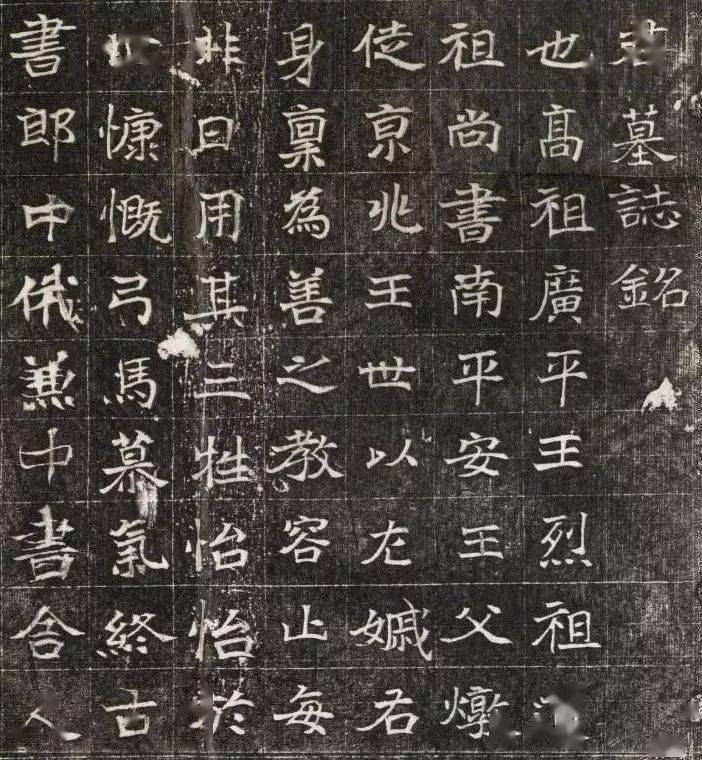 墓誌銘
也高祖廣平王烈祖
祖尚書南平安王父燉
使京兆王世以左右
身稟為善之教容止每
非日用其三牲怡怡於
慷慨弓馬慕氣終古
書郎中俄兼中書舍人